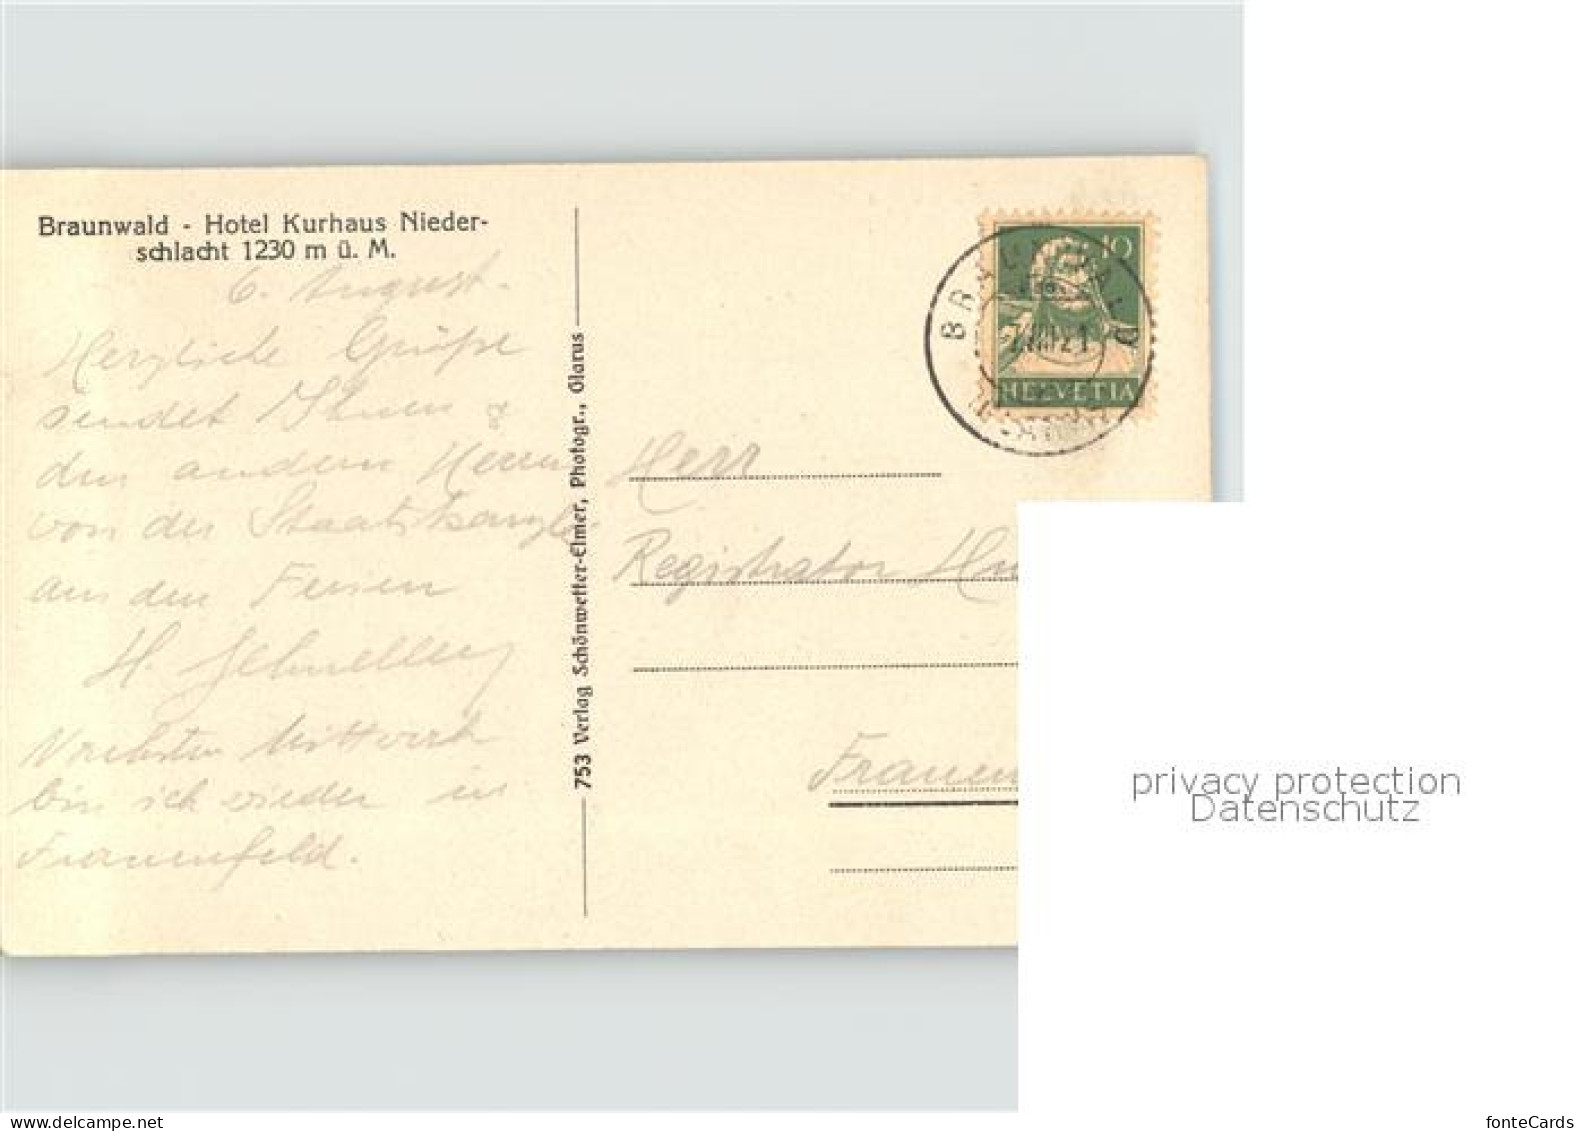 Braunwald - Hotel Kurhaus Nieder-
schlacht 1230 m ü. M.
6. August.
Herzliche Grüße
sendet Ihnen &
den andern Herren
von der Staatskanzlei
aus den Ferien
H. Schnellenz
Nächsten Mittwoch
bin ich wieder in
Frauenfeld.
753 Verlag Schönwetter-Elmer, Photogr., Glarus
BRAUNWALD
7.VIII.21
10
HELVETIA
Herr
Registrator Hu
Frauen
privacy protection
Datenschutz
fonteCards